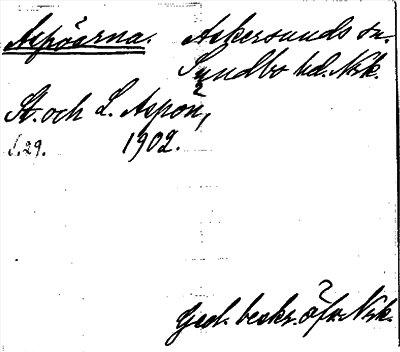 Aspöarna. Askersunds sn.
Sundbo hd. Nrk.
St. och L. Aspön,
s. 29. 1902.
Geol. beskr. öfv. Nrk.